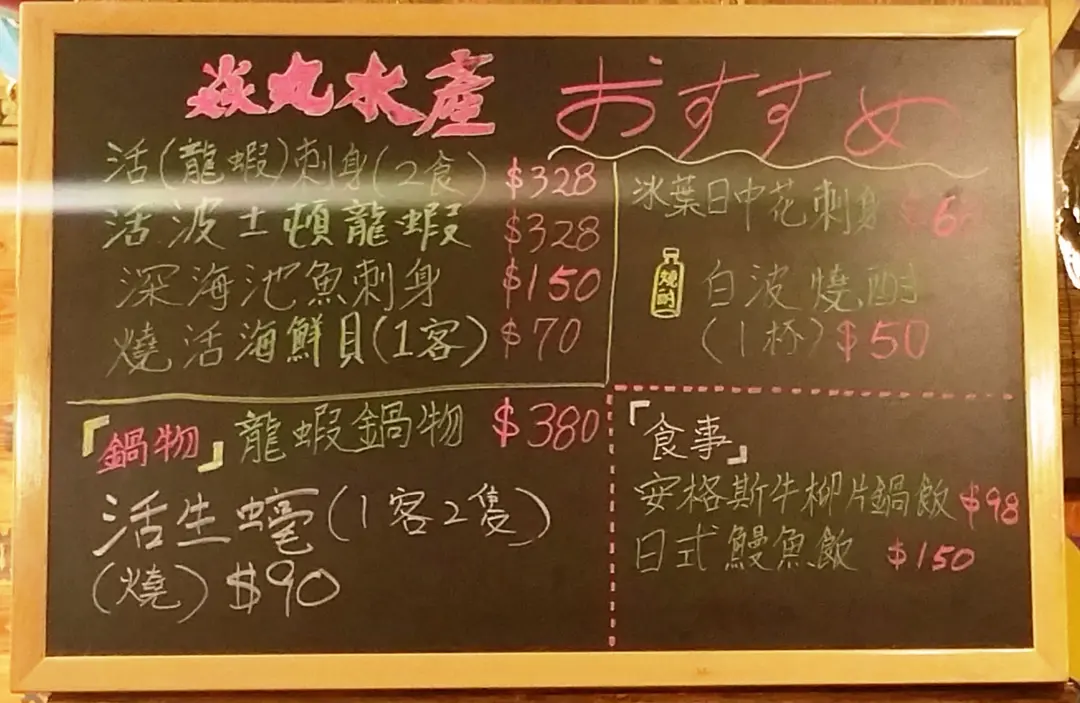 焱丸水產 おすすめ
活(龍蝦)刺身(2食) $328
活波士頓龍蝦 $328
深海池魚刺身 $150
燒活海鮮貝(1客) $70
冰葉日中花刺身
燒酎
白波燒酎
(1杯) $50
「鍋物」龍蝦鍋物 $380
活生蠔(1客2隻)
(燒) $90
「食事」
安格斯牛柳片鍋飯 $98
日式鰻魚飯 $150